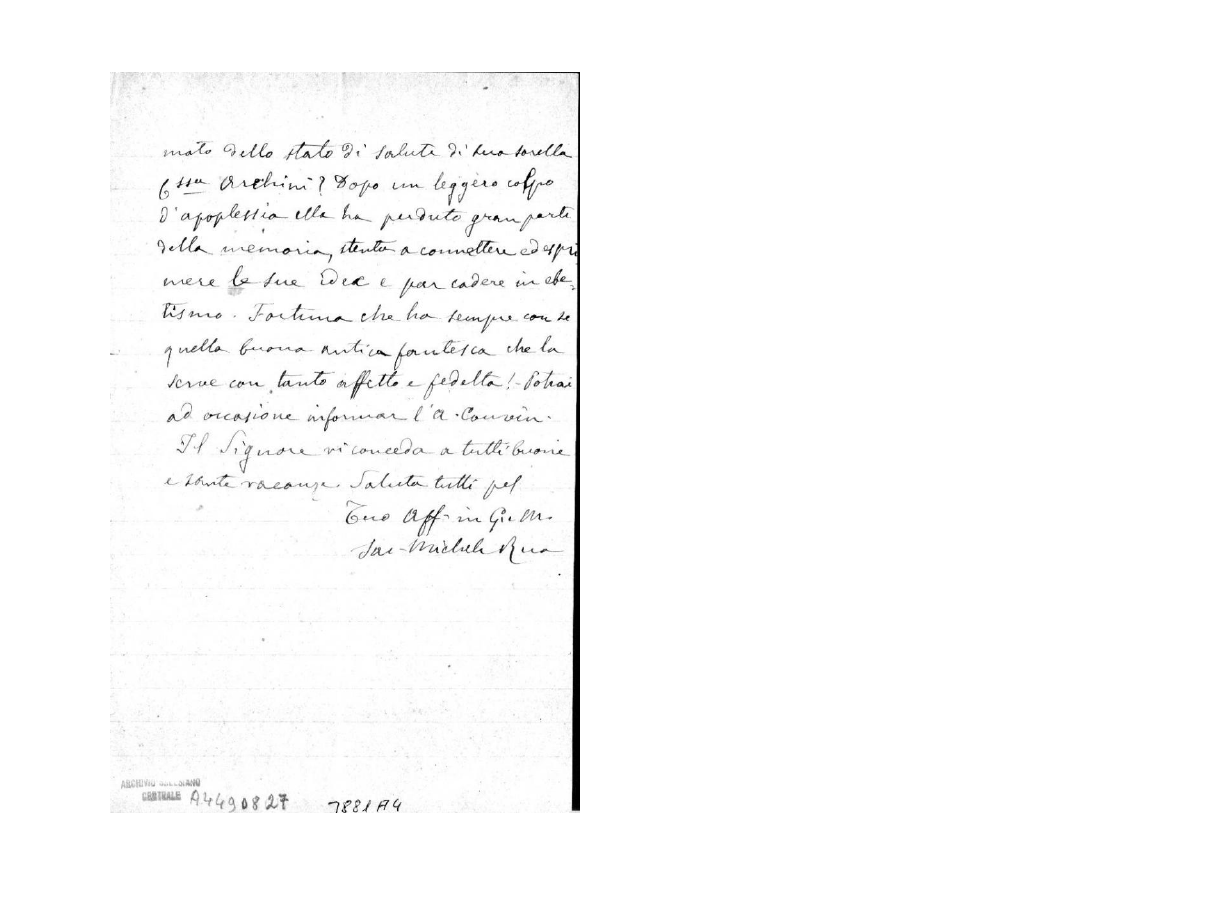 mato dello stato di salute di sua sorella
C.ssa Archini? Dopo un leggero colpo
d'apoplessia ella ha perduto gran parte
della memoria, stenta a connettere ed espri
mere le sue idee e par cadere in ebe=
tismo. Fortuna che ha sempre con se
quella buona antica fantesca che la
serve con tanto affetto e fedeltà! - Potrai
ad occasione informar l'A.
Il Signore vi conceda a tutti buone
e sante vacanze. Saluta tutti pel
Tuo Aff- in G. e M.
Sac- Michele Rua
ARCHIVIO SALESIANO
CENTRALE A4490827
7881 A4